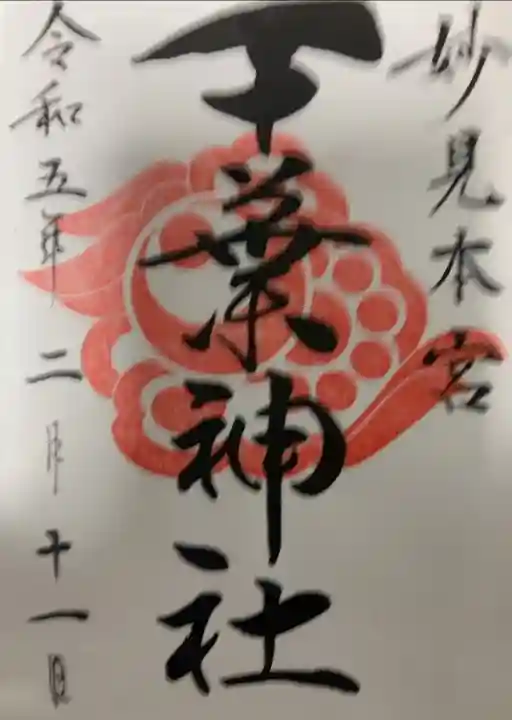 妙見本宮
千葉神社
令和五年二月十一日